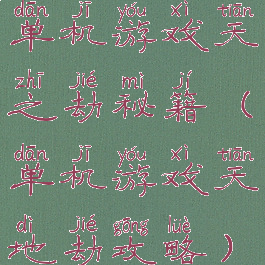 dān jī yóu xì tiān
单机游戏天
zhī jié mì jí
之劫秘籍（
dān jī yóu xì tiān
单机游戏天
dì jié gōng lüè
地劫攻略）